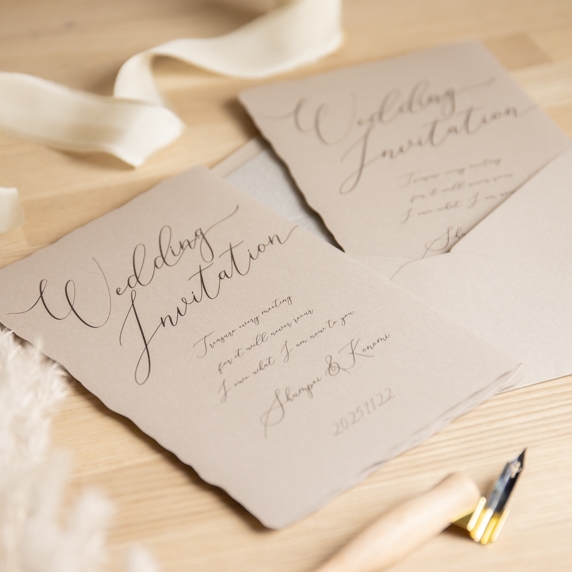 Wedding
Invitation
Treasure every meeting
for it will never recur
I owe what I am now to you
& Konomi
20251122
Wedding
Invitation
Treasure every meeting
for it will never recur
I owe what I am